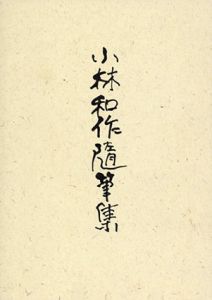 小林和作随筆集